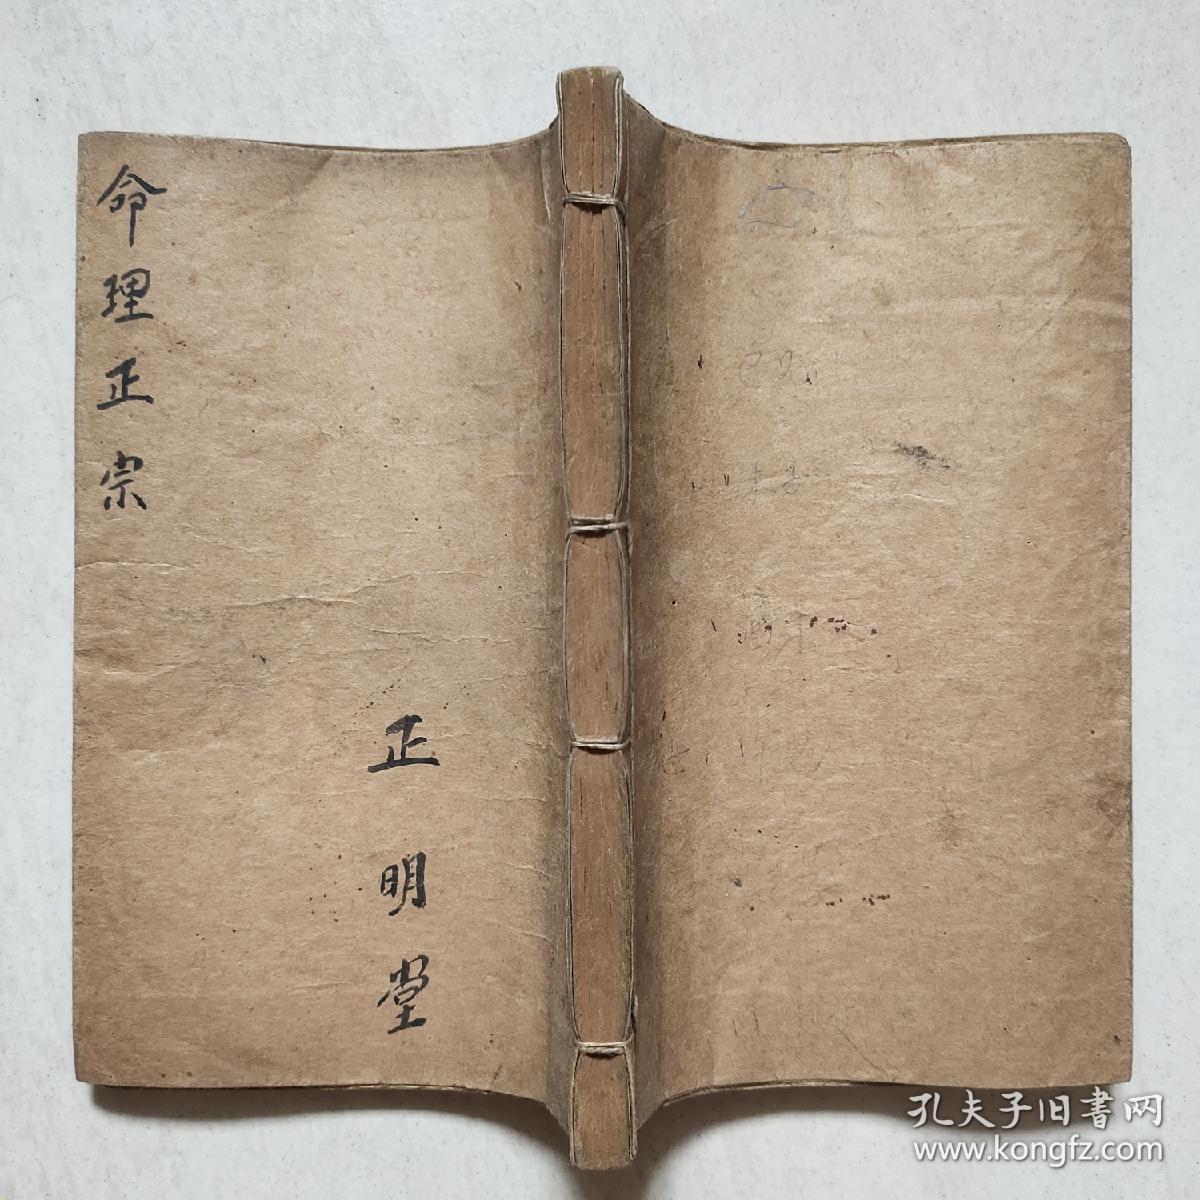 命理正宗
正明堂
孔夫子旧書网
www.kongfz.com